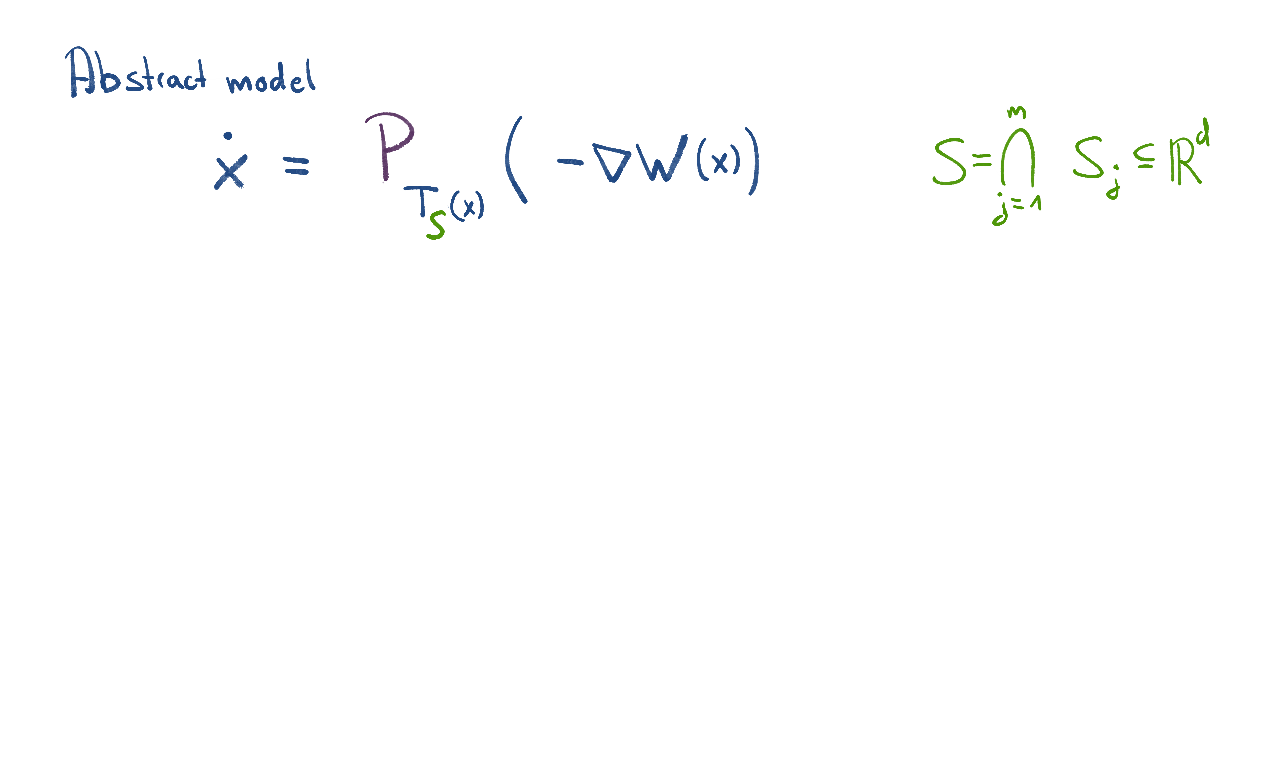 Abstract model
ẋ = P_{T_S(x)} ( -∇W(x) )    S = ⋂_{j=1}^{m} S_j ⊆ ℝ^d